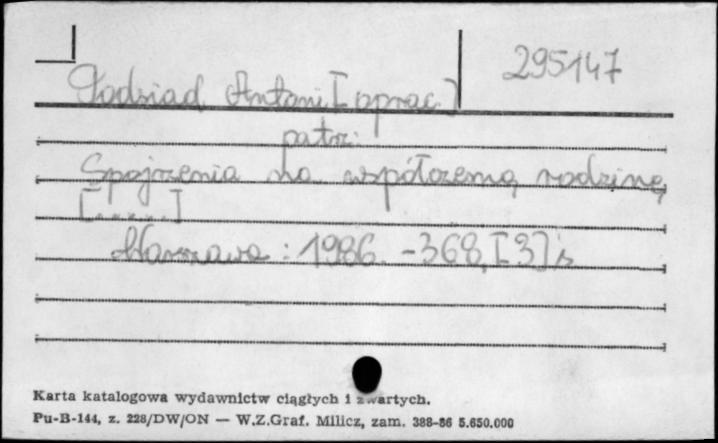 295147
Podsiad Antoni [oprac.]
patrz:
Spojrzenia na współczesną rodzinę
[......]
Warszawa : 1986. - 368, [3] s.
Karta katalogowa wydawnictw ciągłych i zwartych.
Pu-B-144, z. 228/DW/ON — W.Z.Graf. Milicz, zam. 388-86 5.650.000